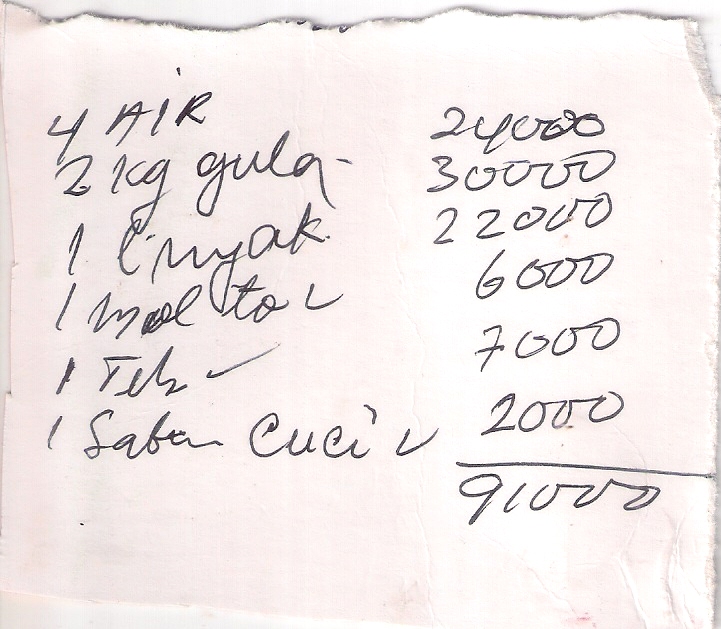 4 AIR 24000
2 kg gula 30000
1 L nyak 22000
1 molto 6000
1 Teh 7000
1 Sabun Cuci 2000
91000